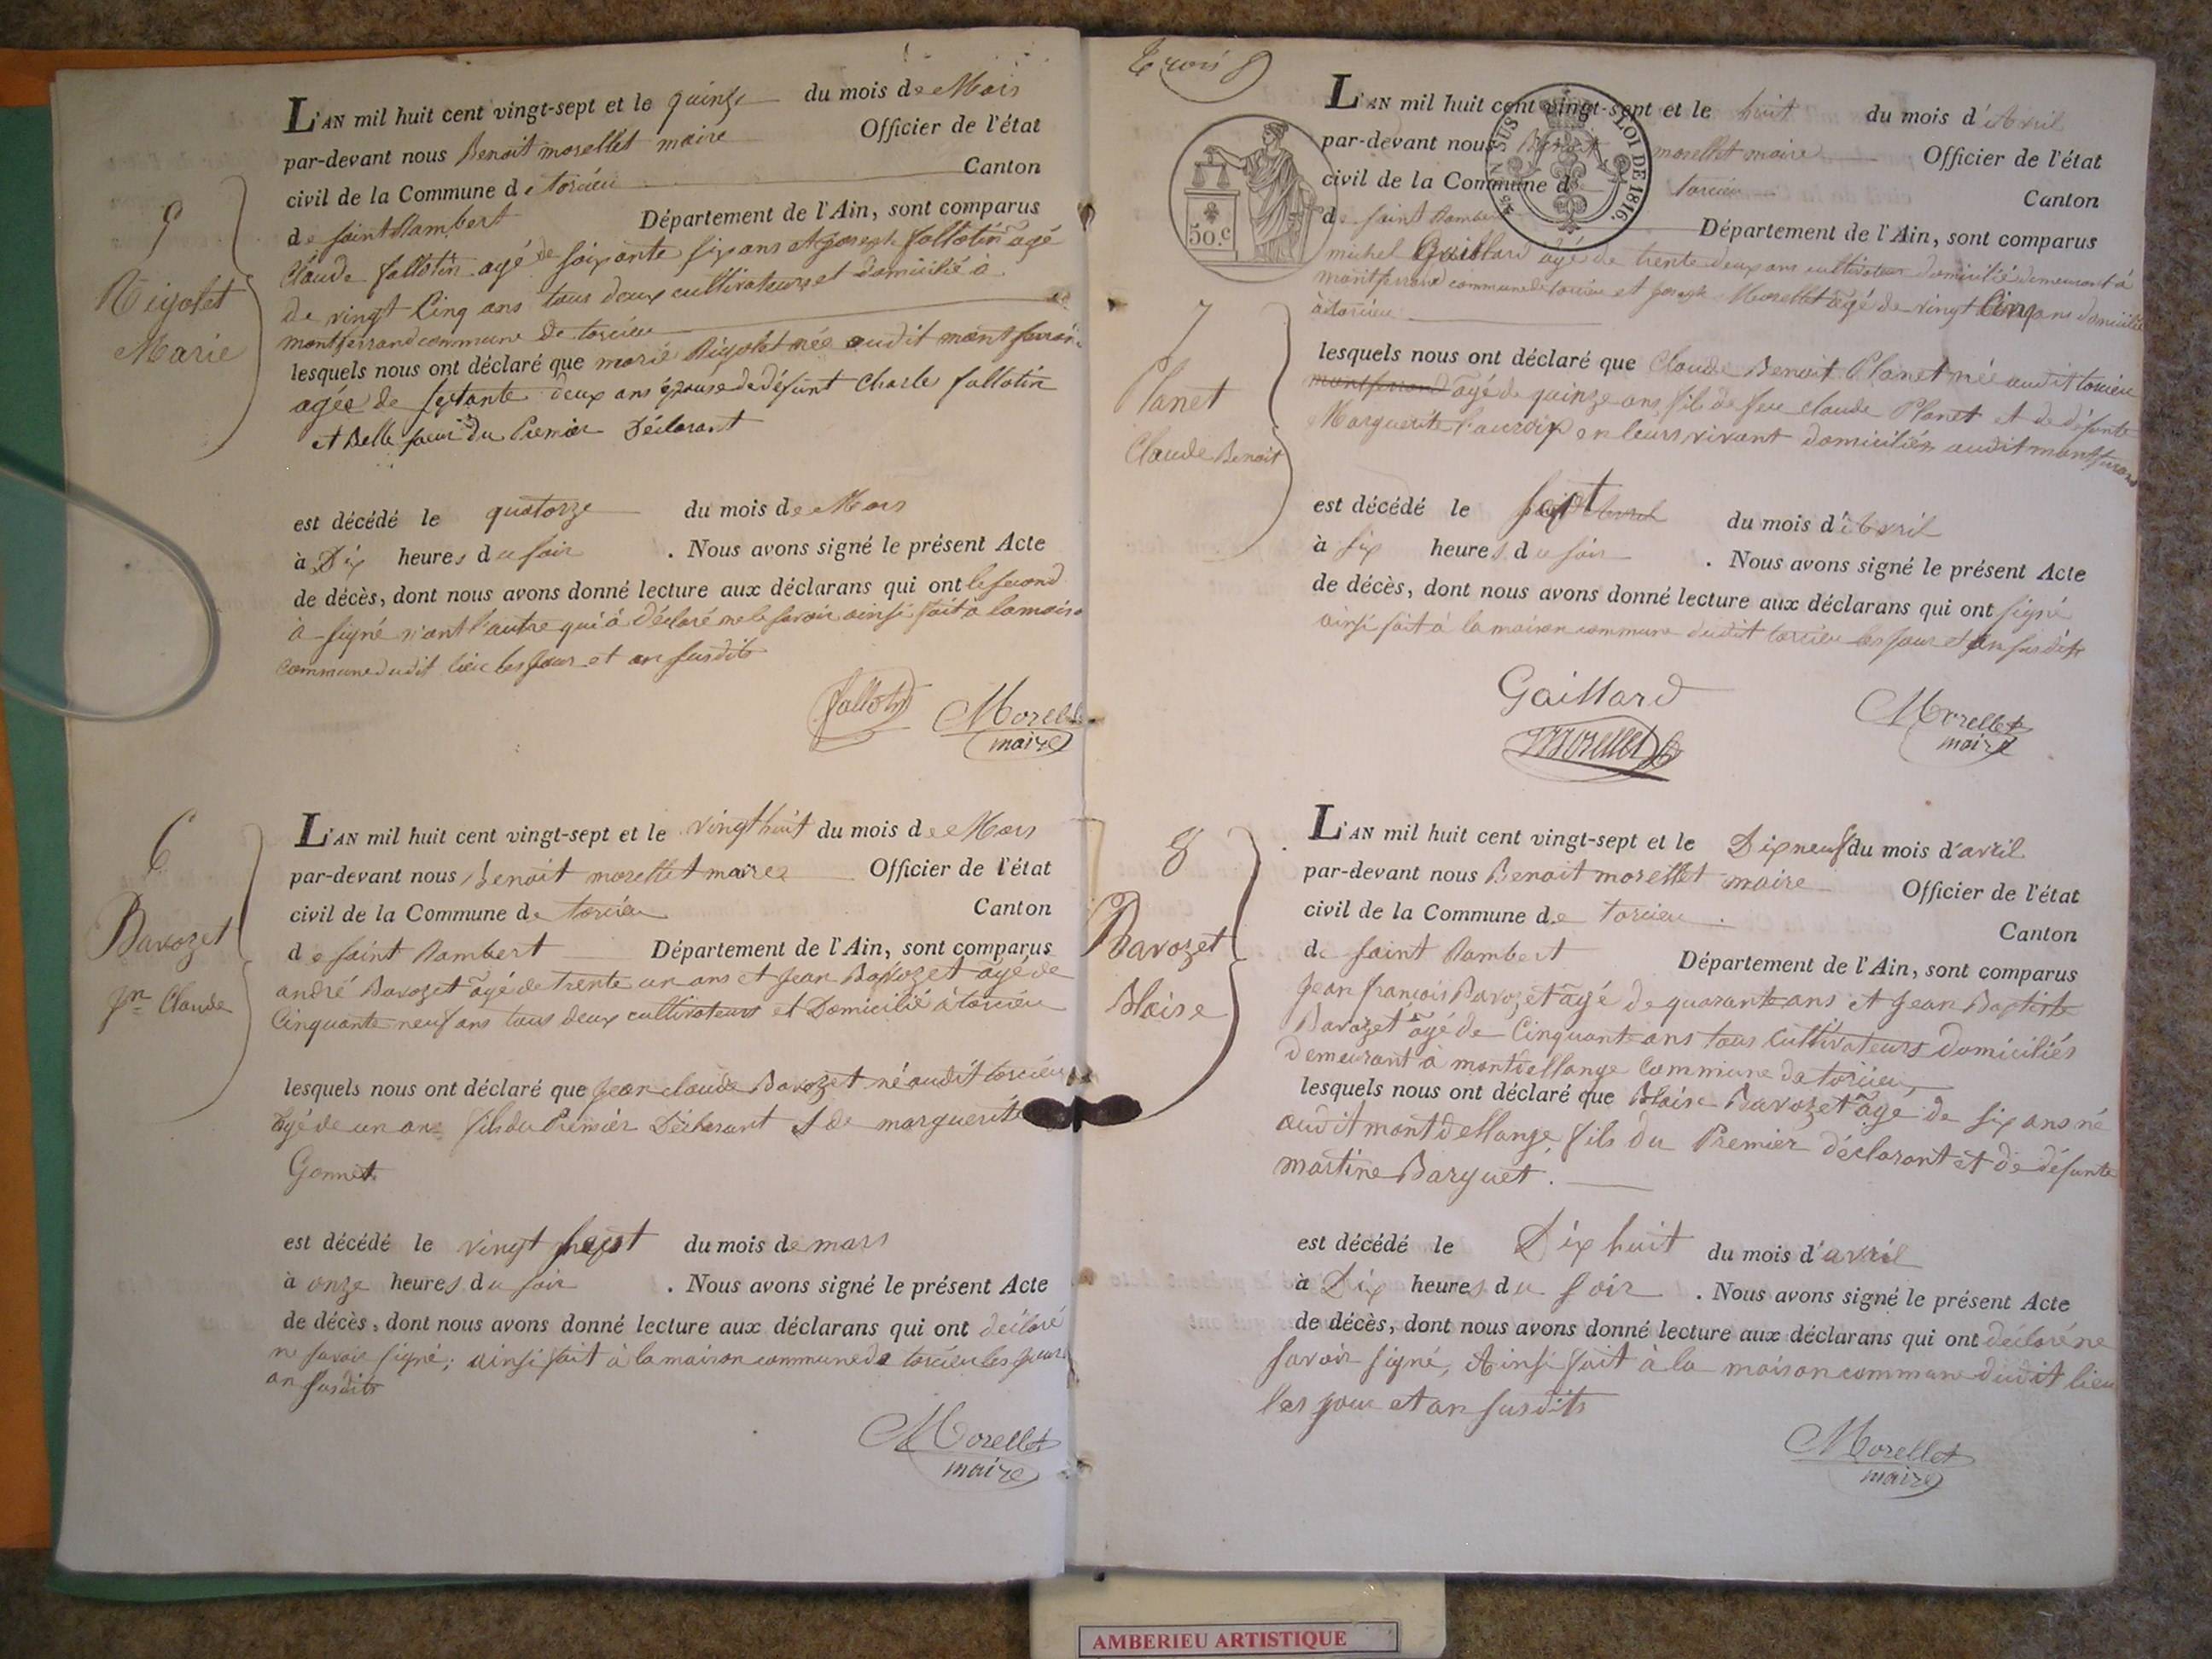 5
Rigolet
Marie
L'AN mil huit cent vingt-sept et le quinze du mois de Mars
par-devant nous Benoit morellet maire Officier de l'état
civil de la Commune de torcieu Canton
de saint Rambert Département de l'Ain, sont comparus
Claude fallotin agé de soixante six ans et joseph fallotin agé
de vingt Cinq ans tous deux cultivateurs et domicilié à
montferrand commune de torcieu
lesquels nous ont déclaré que marie Rigolet née audit montferran
agée de septante deux ans épouse de défunt Charles fallotin
et Belle soeur du Premier Déclarant
est décédé le quatorze du mois de Mars
à Dix heures du soir . Nous avons signé le présent Acte
de décès, dont nous avons donné lecture aux déclarans qui ont le second
à signé n'ant l'autre qui à déclaré ne le savoir ainsi fait à la maison
commune dudit lieu les jour et an susdits
fallotin Morellet
maire
6
Bavozet
jn Claude
L'AN mil huit cent vingt-sept et le vingt huit du mois de Mars
par-devant nous Benoit morellet maire Officier de l'état
civil de la Commune de torcieu Canton
de saint Rambert Département de l'Ain, sont comparus
andré Bavozet agé de trente un ans et jean Bavozet agé de
Cinquante neuf ans tous deux cultivateurs et Domicilié à torcieu
lesquels nous ont déclaré que jean claude Bavozet né audit torcieu
agé de un ans fils du Premier Déclarant et de marguerite
Gonnet
est décédé le vingt sept du mois de mars
à onze heures du soir . Nous avons signé le présent Acte
de décès, dont nous avons donné lecture aux déclarans qui ont déclaré
ne savoir signé; ainsi fait à la maison commune de torcieu les jour
an susdits
Morellet
maire
trois
50.c
LOI DE 1816
L'AN mil huit cent vingt-sept et le huit du mois d'Avril
par-devant nous Benoit morellet maire Officier de l'état
civil de la Commune de torcieu Canton
de saint Rambert Département de l'Ain, sont comparus
michel Gaillard agé de trente deux ans cultivateur domicilié demeurant à
montferrand commune de torcieu et joseph Morellet agé de vingt Cinq ans domicilié
à torcieu
7
Planet
Claude Benoit
lesquels nous ont déclaré que Claude Benoit Planet née audit torcieu
montferrand agé de quinze ans, fils de feu claude Planet et de défunte
Marguerite en leurs vivant domiciliés audit montferrand
est décédé le sept du mois d'Avril
à six heures du soir . Nous avons signé le présent Acte
de décès, dont nous avons donné lecture aux déclarans qui ont signé
ainsi fait à la maison commune dudit torcieu les jour et an susdits
Gaillard
Morellet
Morellet
maire
8
Bavozet
Blaise
L'AN mil huit cent vingt-sept et le Dix neuf du mois d'avril
par-devant nous Benoit morellet maire Officier de l'état
civil de la Commune de torcieu Canton
de saint Rambert Département de l'Ain, sont comparus
jean françois Bavozet agé de quarante ans et jean Baptiste
Bavozet agé de Cinquante ans tous Cultivateurs domiciliés
demeurant à montdellange Commune de torcieu
lesquels nous ont déclaré que Blaise Bavozet agé de six ans né
audit montdellange, fils du Premier déclarant et de défunte
martine Barguet.
est décédé le Dix huit du mois d'avril
à Dix heures du soir . Nous avons signé le présent Acte
de décès, dont nous avons donné lecture aux déclarans qui ont déclaré ne
savoir signé, Ainsi fait à la maison commune dudit lieu
les jour et an susdits
Morellet
maire
AMBERIEU ARTISTIQUE